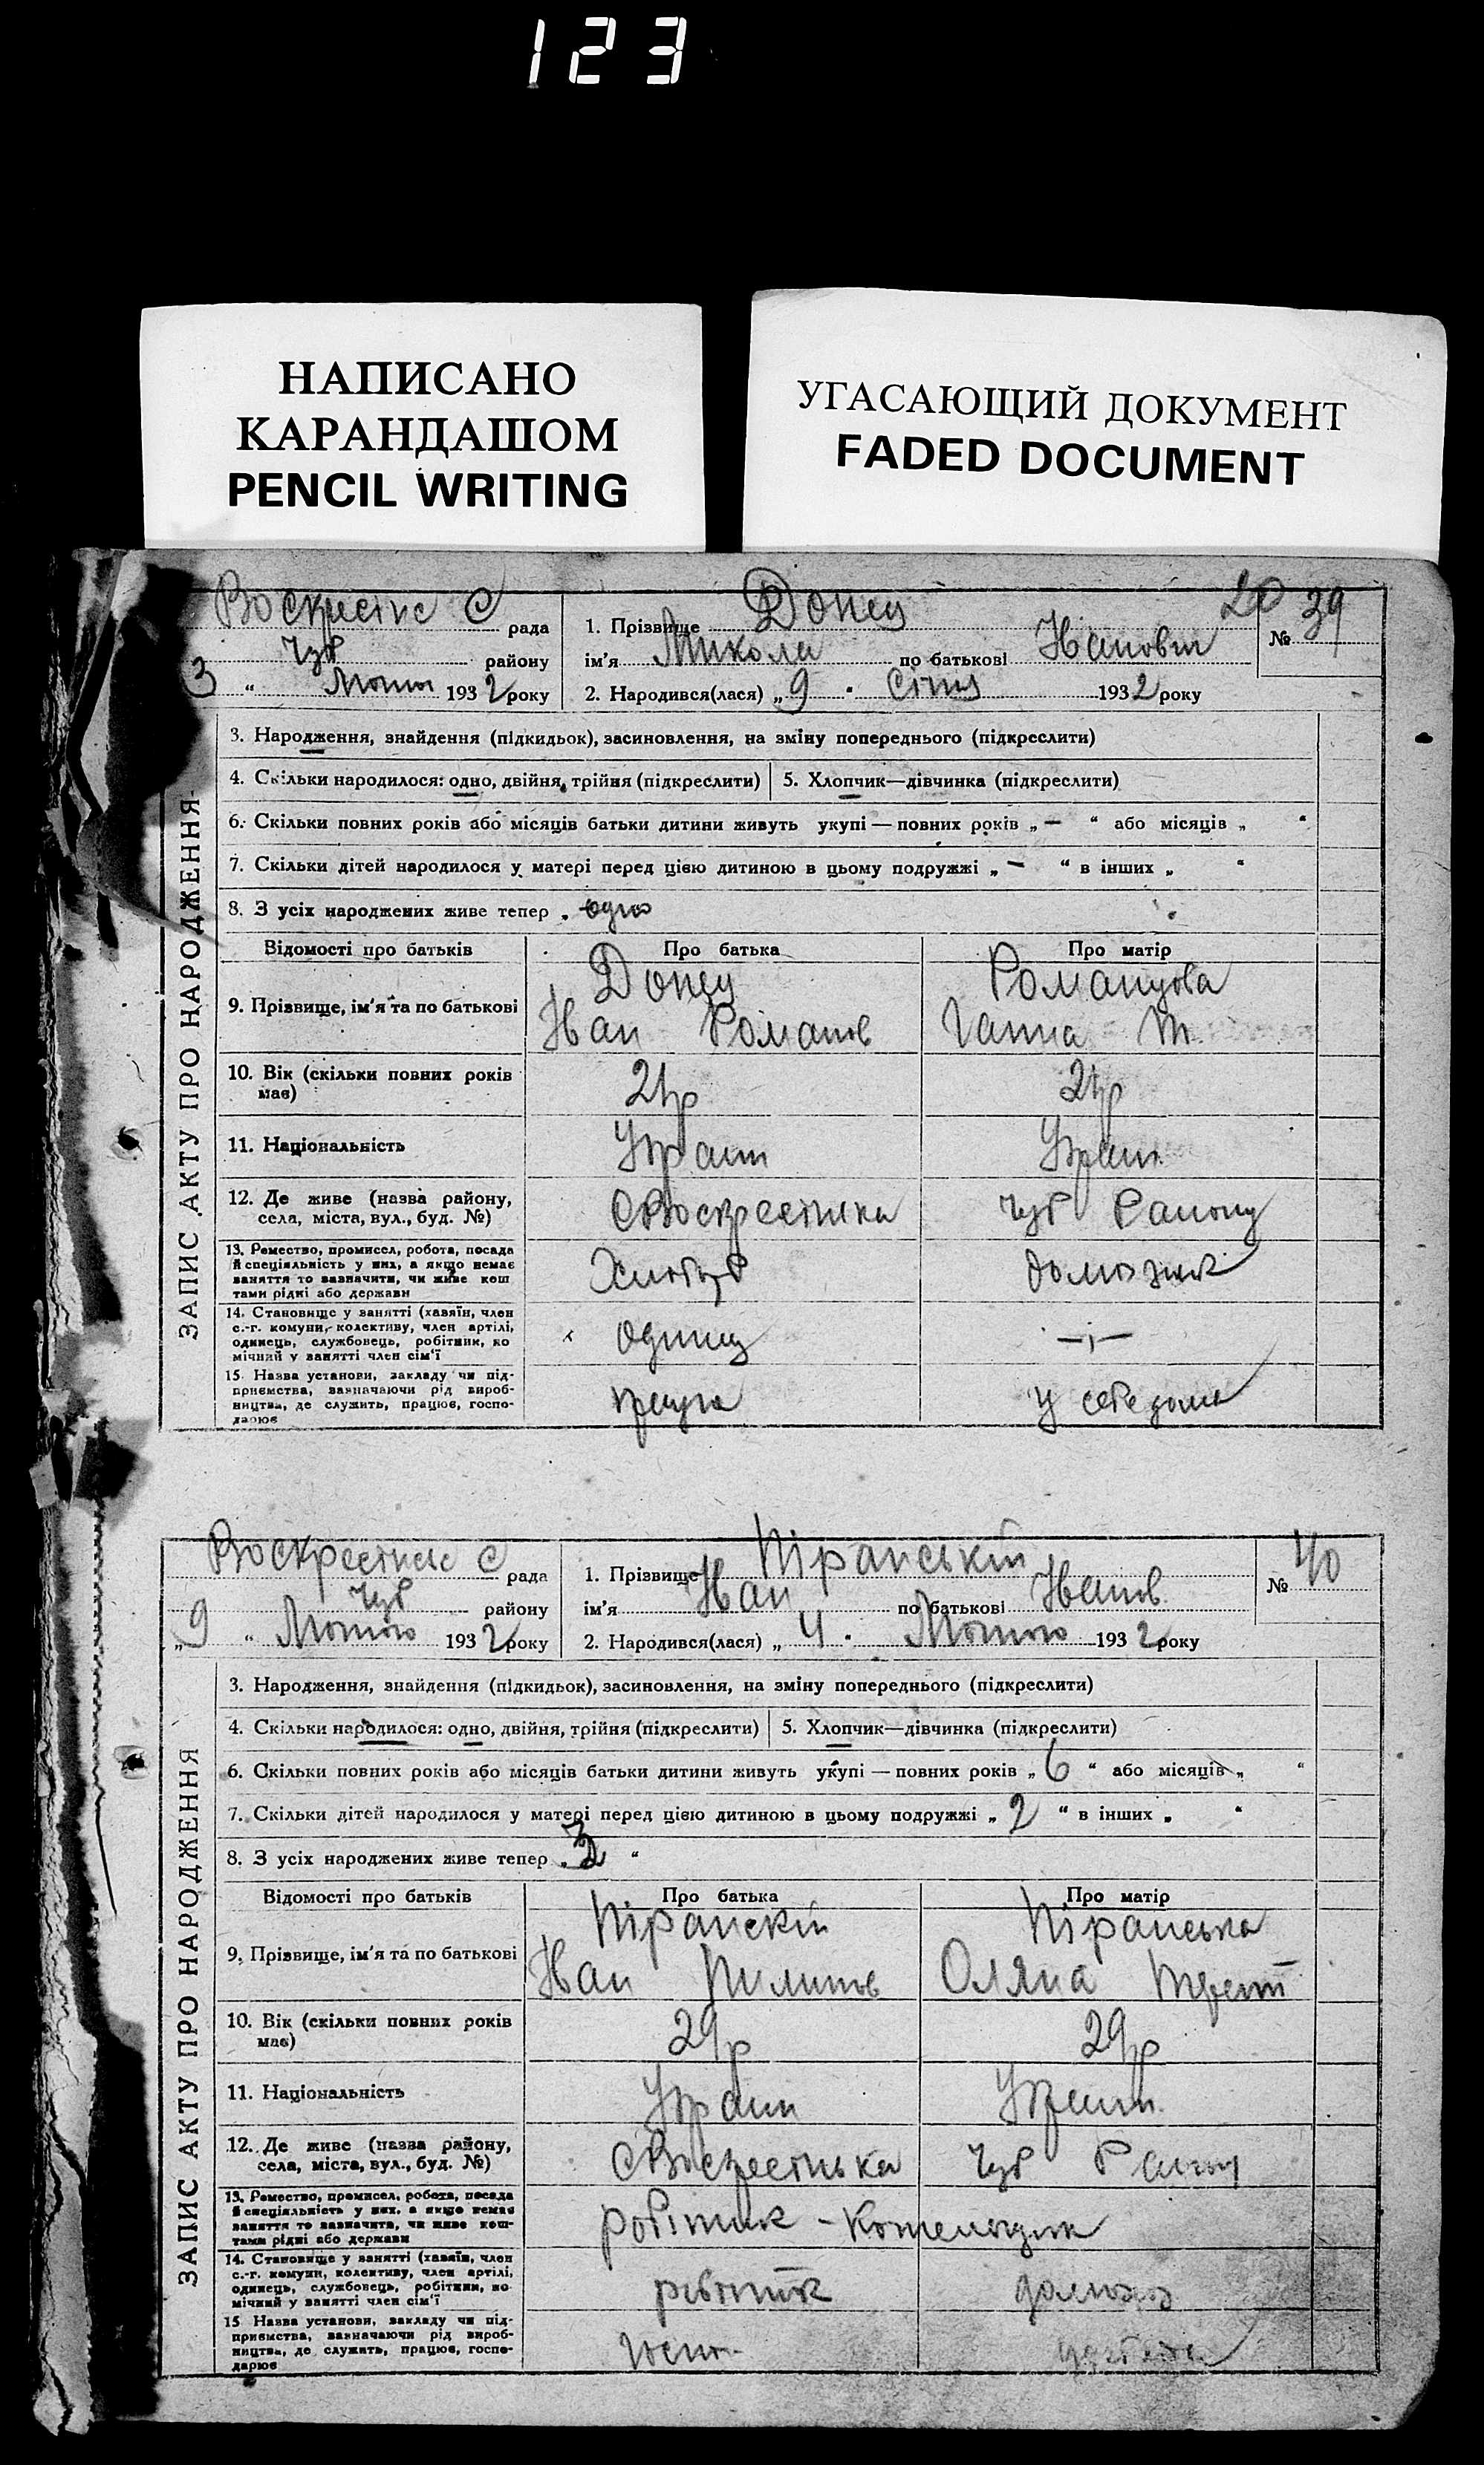 123
НАПИСАНО
КАРАНДАШОМ
PENCIL WRITING
УГАСАЮЩИЙ ДОКУМЕНТ
FADED DOCUMENT
рада
1. Прізвище Донец
20
№ 39
Чуб району
ім'я Микола по батькові Иванович
3 " 1932 року
2. Народився(лася) „ 9 " 1932 року
ЗАПИС АКТУ ПРО НАРОДЖЕННЯ
3. Народження, знайдення (підкидьок), засиновлення, на зміну попереднього (підкреслити)
4. Скільки народилося: одно, двійня, трійня (підкреслити)
5. Хлопчик—дівчинка (підкреслити)
6. Скільки повних років або місяців батьки дитини живуть укупі — повних років „ — “ або місяців „ “
7. Скільки дітей народилося у матері перед цією дитиною в цьому подружжі „ — “ в інших „ “
8. З усіх народжених живе тепер „ одно “
Відомості про батьків
Про батька
Про матір
9. Прізвище, ім'я та по батькові
Донец
Иван Романов
Ганна
10. Вік (скільки повних років має)
21 р
21 р
11. Національність
Украин
Украин
12. Де живе (назва району, села, міста, вул., буд. №)
Чуб Району
13. Ремество, промисел, робота, посада
й спеціяльність у них, а якщо немає
заняття то зазначити, чи живе кош
тами рідні або держави
14. Становище у занятті (хазяїн, член
с.-г. комуни, колективу, член артілі,
одинець, службовець, робітник, по
мічний у занятті член сім'ї
одинец
15. Назва установи, закладу чи під-
приємства, зазначаючи рід вироб-
ництва, де служить, працює, госпо-
дарює
у себе дома
рада
1. Прізвище Піранський
№ 40
Чуб району
ім'я Иван по батькові Иванов
„ 9 “ Лютого 1932 року
2. Народився(лася) „ 4 " Лютого 1932 року
ЗАПИС АКТУ ПРО НАРОДЖЕННЯ
3. Народження, знайдення (підкидьок), засиновлення, на зміну попереднього (підкреслити)
4. Скільки народилося: одно, двійня, трійня (підкреслити)
5. Хлопчик—дівчинка (підкреслити)
6. Скільки повних років або місяців батьки дитини живуть укупі — повних років „ 6 “ або місяців „ “
7. Скільки дітей народилося у матері перед цією дитиною в цьому подружжі „ 2 “ в інших „ “
8. З усіх народжених живе тепер „ 3 “
Відомості про батьків
Про батька
Про матір
9. Прізвище, ім'я та по батькові
Піранскій
Піранська
Иван
Оляна
10. Вік (скільки повних років має)
29 р
29 р
11. Національність
Украин
Украин
12. Де живе (назва району, села, міста, вул., буд. №)
Чуб
13. Ремество, промисел, робота, посада
й спеціяльність у них, а якщо немає
заняття то зазначити, чи живе кош-
тами рідні або держави
робітник -
14. Становище у занятті (хазяїн, член
с.-г. комуни, колективу, член артілі,
одинець, службовець, робітник, по-
мічний у занятті член сім'ї
робітник
15 Назва установи, закладу чи під-
приємства, зазначаючи рід вироб-
ництва, де служить, працює, госпо-
дарює